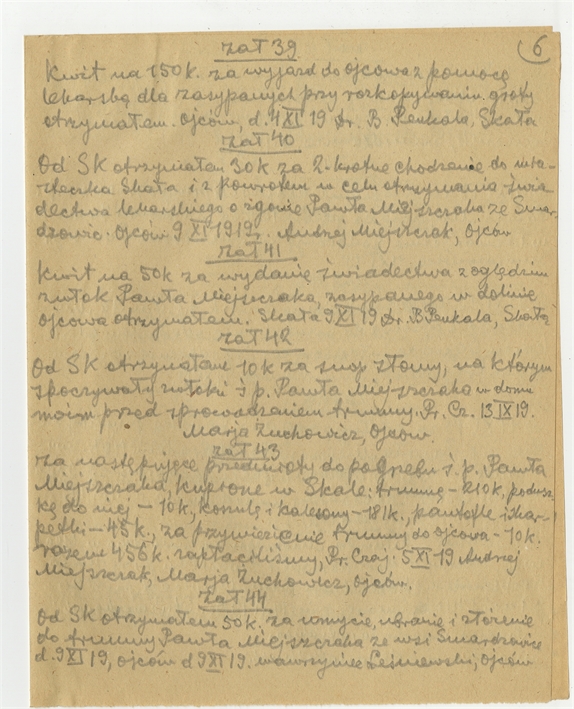 6
zał 39
Kwit na 150 k. za wyjazd do Ojcowa z pomocą
lekarską dla zasypanych przy rozkopywaniu groty
otrzymałem. Ojców, d. 4 XI 19 Dr. B Penkala, Skała
zał 40
Od SK otrzymałem 30 k za 2-krotne chodzenie do mia-
steczka Skała i z powrotem w celu otrzymania świa-
dectwa lekarskiego o zgonie Pawła Miejszczaka ze Smar-
dzowic. Ojców 9 XI 1919 r. Andrzej Miejszczak, Ojców
zał 41
Kwit na 50 k za wydanie świadectwa z oględzin
zwłok Pawła Miejszczaka, zasypanego w dolinie
Ojcowa otrzymałem. Skała 9 XI 19 Dr. B Penkala, Skała
zał 42
Od SK otrzymałam 10 k za snop słomy, na którym
spoczywały zwłoki ś p. Pawła Miejszczaka w domu
moim przed sprowadzeniem trumny. Pr. Cz. 13 IX 19.
Marja Żuchowicz, Ojców.
zał 43
Za następujące przedmioty do pogrzebu ś. p. Pawła
Miejszczaka, kupione w Skale: trumnę – 210 k, podusz-
kę do niej – 10 k, koszulę i kalesony – 181 k., pantofle i skar-
petki – 45 k., za przywiezienie trumny do Ojcowa – 10 k.
razem 456 k. zapłaciliśmy, Pr. Czaj. 5 XI 19 Andrzej
Miejszczak, Marja Żuchowicz, Ojców.
zał 44
Od SK otrzymałem 50 k. za umycie, ubranie i złożenie
do trumny Pawła Miejszczaka ze wsi Smardzowice
d. 9 XI 19, Ojców d 9 XI 19. Wawrzyniec Leśniewski, Ojców